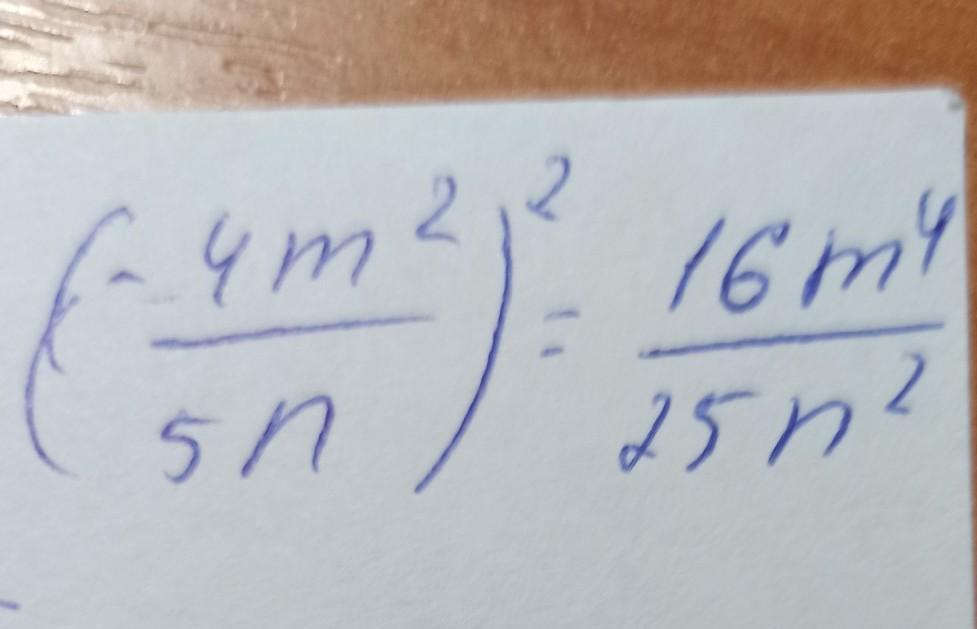 (- 4m²/5n)² = 16m⁴/25n²